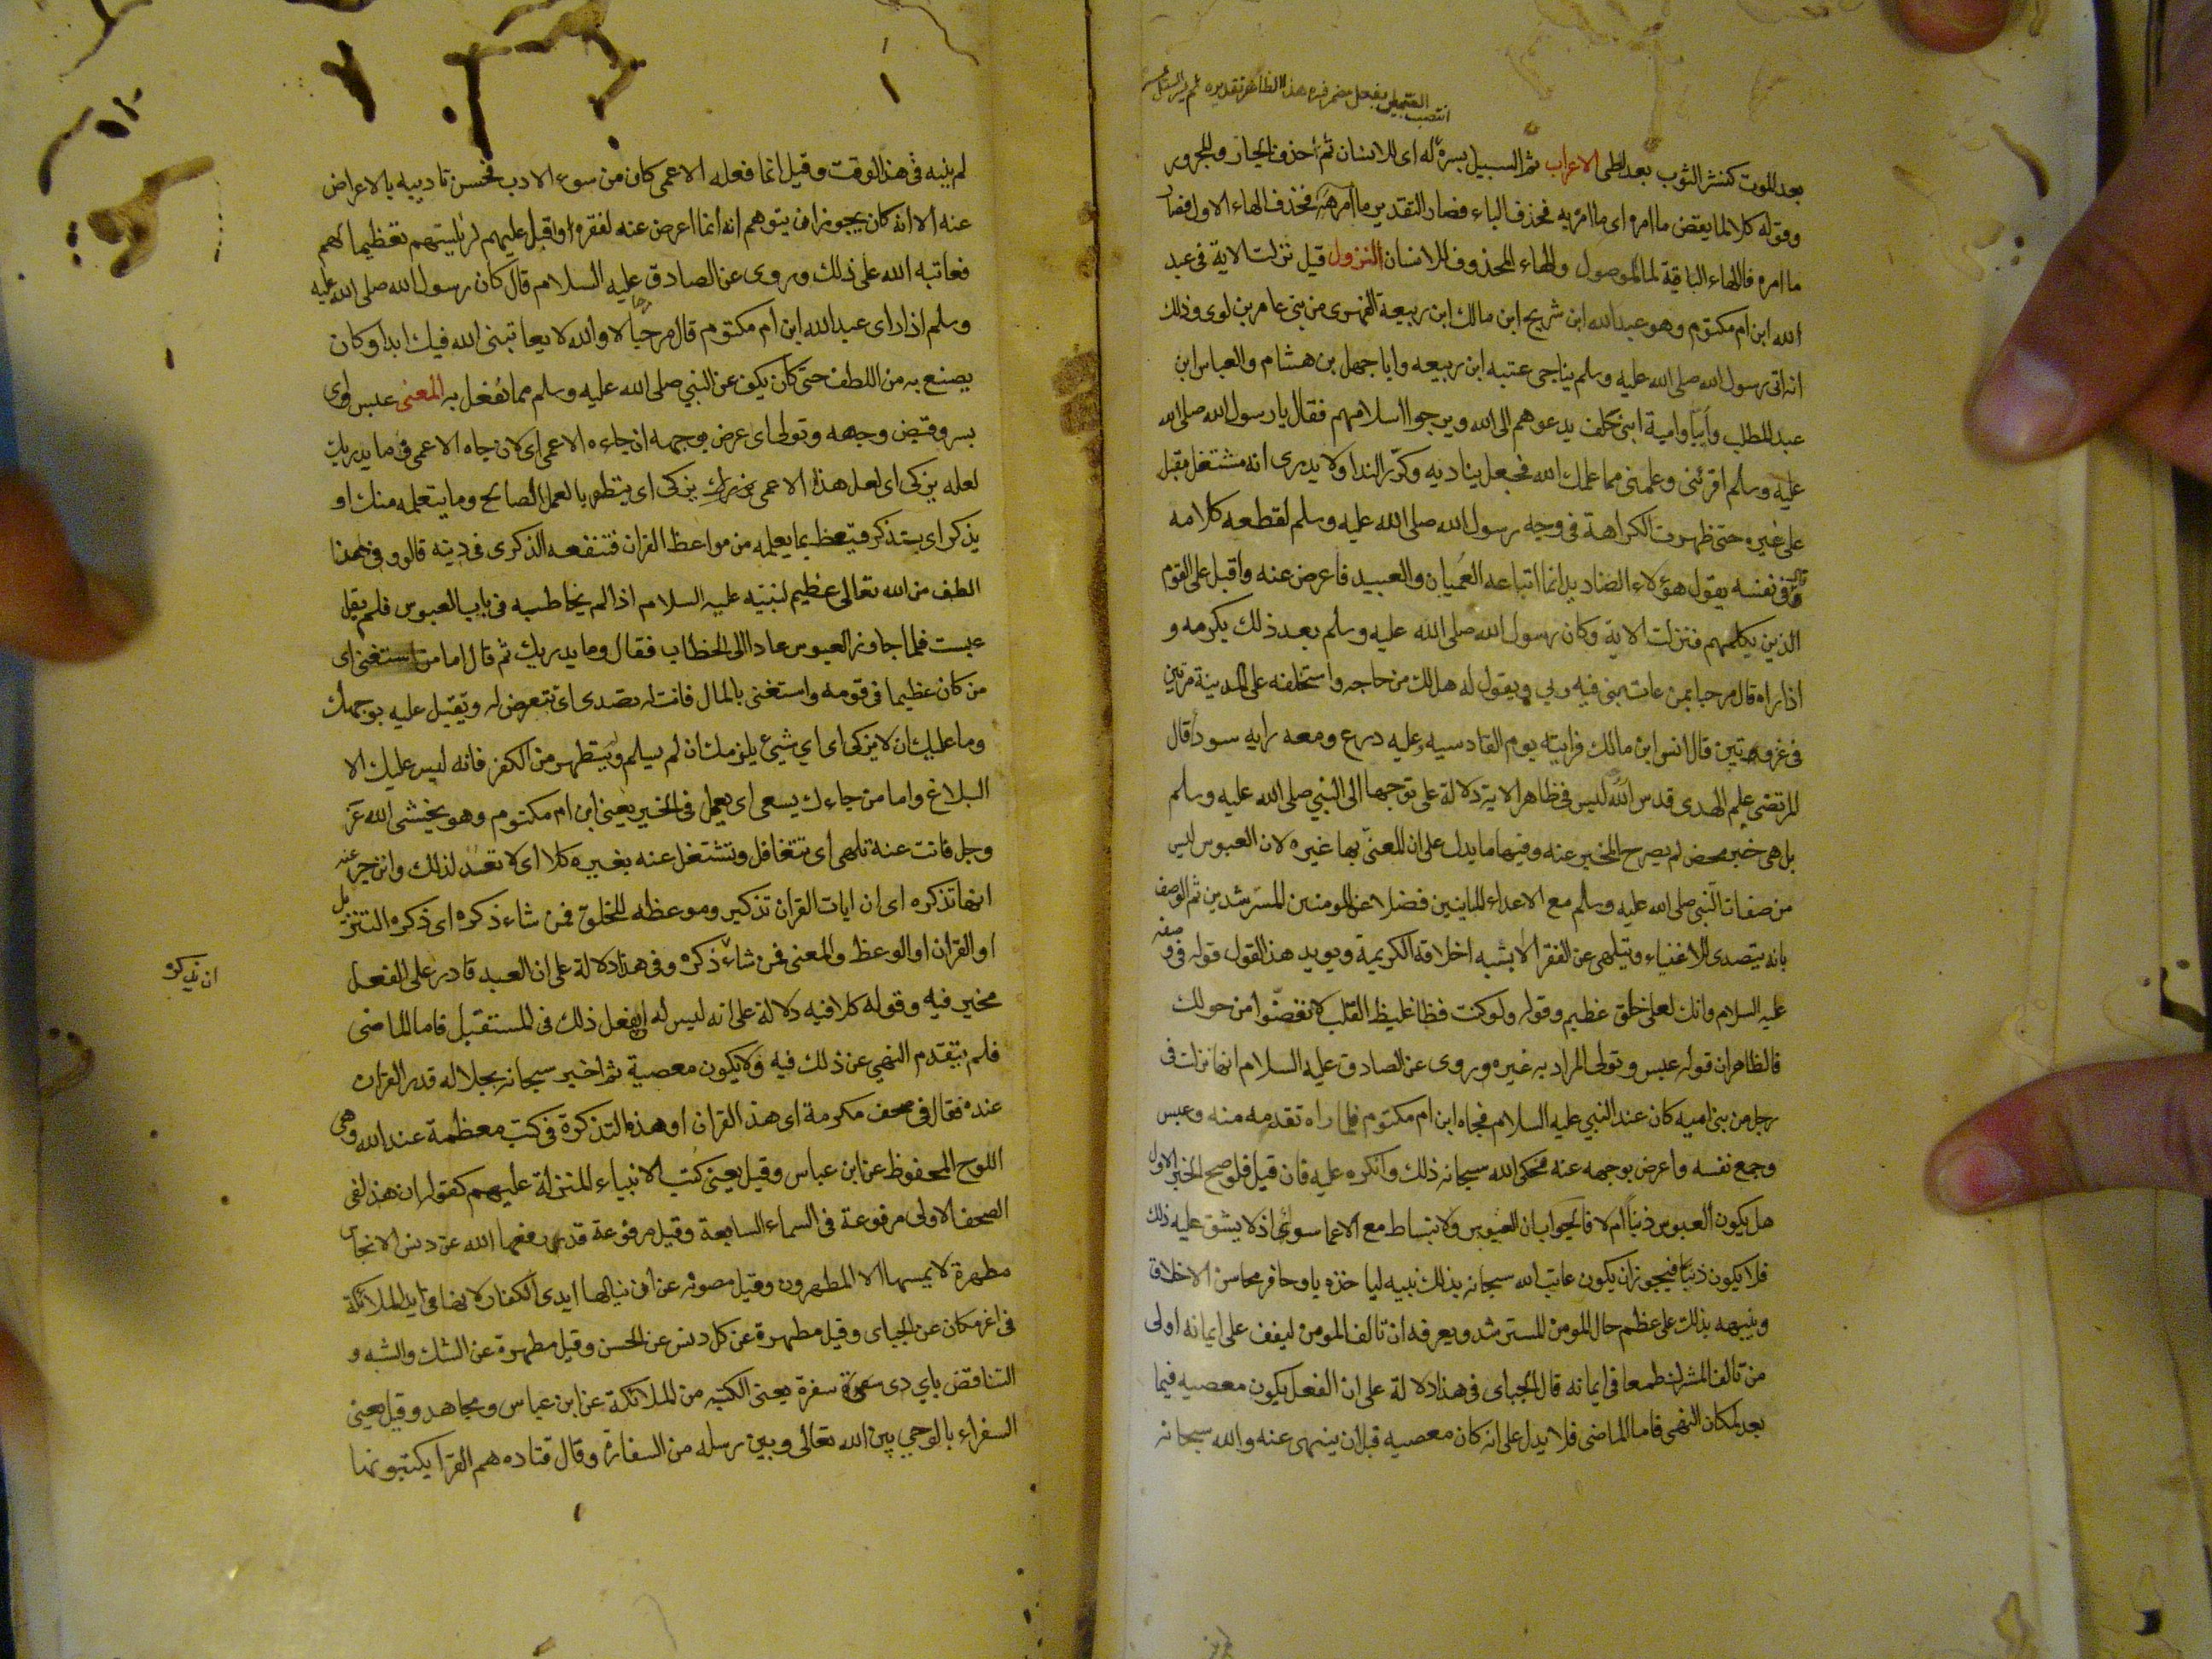 انتصب السبيل بفعل مضمر فسره هذا الظاهر تقديره ثم يسر السبيل
بعد الموت كنشر الثوب بعد الطى الاعراب ثم السبيل يسره له اى للانسان ثم احذف الجار والمجرور
وقوله كلا لما يقض ما امره اى ما امر به فحذف الباء فصار التقدير ما امرهه فحذف الهاء الاول فصار
ما امره فالهاء الباقية لما الموصول والهاء المحذوف للانسان النزول قيل نزلت الاية فى عبد
الله ابن ام مكتوم وهو عبد الله ابن شريح ابن مالك ابن ربيعة الفهرى من بنى عامر بن لوى وذلك
انه اتى رسول الله صلى الله عليه وسلم يناجى عتبه ابن ربيعه وابا جهل بن هشام والعباس ابن
عبد المطلب وأبيا وامية ابنى خلف يدعوهم الى الله ويرجوا اسلامهم فقال يا رسول الله صلى الله
عليه وسلم اقرئنى وعلمنى مما علمك الله فجعل يناديه وكرر الندا ولا يدرى انه مشتغل مقبل
على غيره حتى ظهرت الكراهة فى وجه رسول الله صلى الله عليه وسلم لقطعه كلامه
قال فى نفسه يقول هؤلاء الصناديد انما اتباعه العميان والعبيد فاعرض عنه واقبل على القوم
الذين يكلمهم فنزلت الاية وكان رسول الله صلى الله عليه وسلم بعد ذلك يكرمه و
اذا راه قال مرحبا بمن عاتبنى فيه ربي ويقول له هل لك من حاجه واستخلفه على المدينة مرتين
فى غزوتين قال انس ابن مالك فرايته يوم القادسيه وعليه درع ومعه رايه سودا قال
المرتضى علم الهدى قدس الله ليس فى ظاهر الاية دلالة على توجهها الى النبي صلى الله عليه وسلم
بل هى خبر محض لم يصرح المخبر عنه وفيها ما يدل على ان المعنى بها غيره لان العبوس ليس
من صفات النبى صلى الله عليه وسلم مع الاعداء المباينين فضلا عن المومنين المسترشدين ثم الوصف
بانه يتصدى للاغنياء ويتلهى عن الفقرا لا يشبه اخلاقه الكريمة ويويد هذا القول قوله فى صفه
عليه السلام وانك لعلى خلق عظيم وقوله ولو كنت فظا غليظ القلب لانفضوا من حولك
فالظاهر ان قوله عبس وتولى المراد به غيره وروى عن الصادق عليه السلام انها نزلت فى
رجل من بنى اميه كان عند النبي عليه السلام فجاه ابن ام مكتوم فلما راه تقدمه منه وعبس
وجمع نفسه واعرض بوجهه عنه فحكى الله سبحانه ذلك وانكره عليه فان قيل فلو صح الخبر الاول
هل يكون العبوس ذنبا ام لا فالجواب ان العبوس والانبساط مع الاعما سوى اذ لا يشق عليه ذلك
فلا يكون ذنبا فيجوز ان يكون عاتب الله سبحانه بذلك نبيه لياخذه باوحافر محاسن الاخلاق
وينبهه بذلك على عظم حال المومن المسترشد ويعرفه ان تالف المومن ليقف على ايمانه اولى
من تالف المشرك طمعا فى ايمانه قال الجباى فى هذا دلالة على ان الفعل يكون معصيه فيما
بعد لمكان النهى فاما الماضى فلا يدل على انه كان معصيه قبل ان ينهى عنه والله سبحانه
لم ينبه فى هذا الوقت وقيل انما فعله الاعمى كان من سوء الادب فحسن تاديبه بالاعراض
عنه الا انه كان يجوز ان يتوهم انه انما اعرض عنه لفقره واقبل عليهم لرئاستهم تعظيما لهم
فعاتبه الله على ذلك وروى عن الصادق عليه السلام قال كان رسول الله صلى الله عليه
وسلم اذا راى عبد الله ابن ام مكتوم قال مرحبا مرحبا لا والله لا يعاتبنى الله فيك ابدا وكان
يصنع به من اللطف حتى كان يكف عن النبي صلى الله عليه وسلم مما يفعل به المعنى عبس اى
بسر وقبض وجهه وتولى اى عرض بوجهه ان جاءه الاعمى اى لان جاه الاعمى وما يدريك
لعله يزكى اى لعل هذا الاعمى يزكى اى يتطهر بالعمل الصالح وما يتعلمه منك او
يذكر اى يتذكر فيتعظ بما يعلمه من مواعظ القران فتنفعه الذكرى فى دينه قالوا وفى هذا
الطف من الله تعالى عظيم لنبيه عليه السلام اذ لم يخاطبه فى باب العبوس فلم يقل
عبست فلما جاوز العبوس عاد الى الخطاب فقال وما يدريك ثم قال اما من استغنى اى
من كان عظيما فى قومه واستغنى بالمال فانت له تصدى اى تتعرض له وتقبل عليه بوجهك
وما عليك ان لا يزكى اى اي شيء يلزمك ان لم يسلم ويتطهر من الكفر فانه ليس عليك الا
البلاغ واما من جاءك يسعى اى يعمل فى الخير يعنى ابن ام مكتوم وهو يخشى الله عز
وجل فانت عنه تلهى اى تتغافل وتشتغل عنه بغيره كلا اى لا تعد لذلك وانزجر عنه
انها تذكره اى ان ايات القران تذكير وموعظه للخلق فمن شاء ذكره اى ذكره التنزيل
او القران او الوعظ والمعنى فمن شاء ذكره وفى هذا دلالة على ان العبد قادر على الفعل
ان يذكره
مخير فيه وقوله كلا فيه دلالة على انه ليس له ان يفعل ذلك فى المستقبل فاما الماضى
فلم يتقدم النهي عن ذلك فيه ولا يكون معصية ثم اخبر سبحانه بجلاله قدر القران
عنده فقال فى صحف مكرمة اى هذا القران او هذه التذكرة فى كتب معظمة عند الله وهى
اللوح المحفوظ عن ابن عباس وقيل يعنى كتب الانبياء المنزلة عليهم كقوله ان هذا لفى
الصحف الاولى مرفوعة فى السماء السابعة وقيل مرفوعة قد رفعها الله عن دنس الانجاس
مطهرة لا يمسها الا المطهرون وقيل مصونه عن ان ينالها ايدى الكفار لانها فى ايدى الملائكة
فى اعز مكان عن الجباى وقيل مطهرة عن كل دنس عن الحسن وقيل مطهرة عن الشك والشبه و
التناقض بايدى سفرة يعنى الكتبه من الملائكة عن ابن عباس ومجاهد وقيل يعنى
السفراء بالوحي بين الله تعالى وبين رسله من السفارة وقال قتاده هم القرا يكتبونها